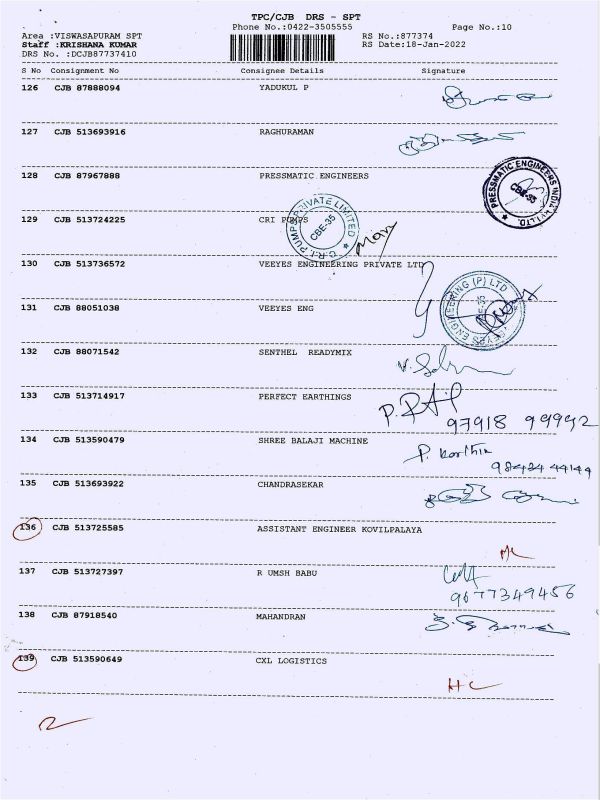 TPC/CJB DRS - SPT
Phone No.:0422-3505555 Page No.:10
Area :VISWASAPURAM SPT RS No.:877374
Staff :KRISHANA KUMAR RS Date:18-Jan-2022
DRS No. :DCJB87737410
S No Consignment No Consignee Details Signature
126 CJB 87888094 YADUKUL P
127 CJB 513693916 RAGHURAMAN
128 CJB 87967888 PRESSMATIC ENGINEERS
PRESSMATIC ENGINEERS INDIA (P) LTD
CBE-35
129 CJB 513724225 CRI PUMPS
C.R.I. PUMPS PRIVATE LIMITED
CBE-35
130 CJB 513736572 VEEYES ENGINEERING PRIVATE LTD
VEEYES ENGINEERING (P) LTD
CBE-35
131 CJB 88051038 VEEYES ENG
132 CJB 88071542 SENTHEL READYMIX
133 CJB 513714917 PERFECT EARTHINGS
97918 99992
134 CJB 513590479 SHREE BALAJI MACHINE
P. Karthik
98424 44144
135 CJB 513693922 CHANDRASEKAR
136 CJB 513725585 ASSISTANT ENGINEER KOVILPALAYA
137 CJB 513727397 R UMSH BABU
9677349456
138 CJB 87918540 MAHANDRAN
139 CJB 513590649 CXL LOGISTICS